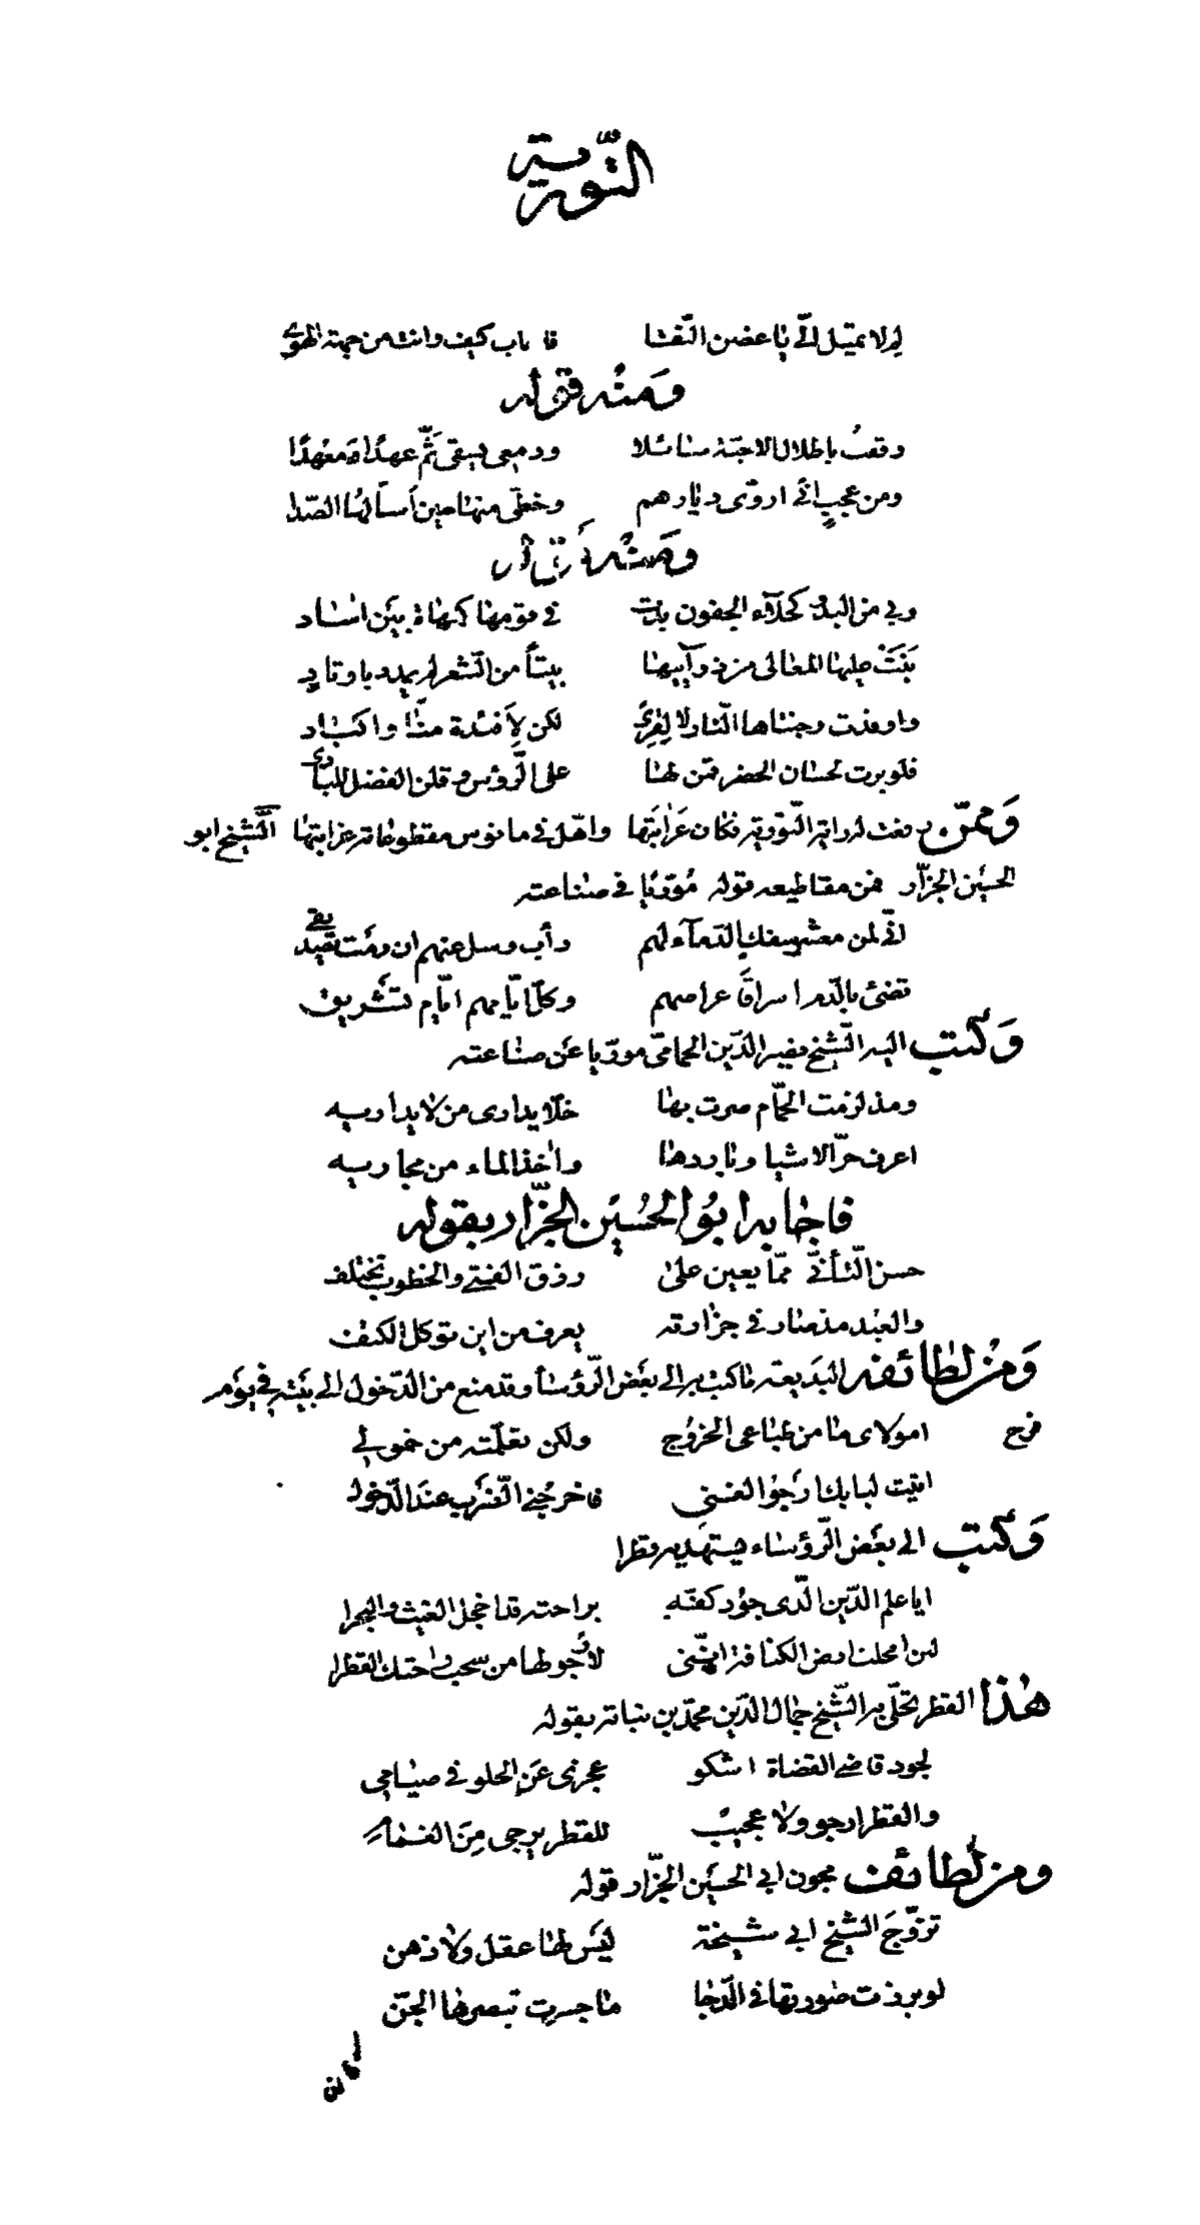 التورية
لم لا تميل إلي يا غصن النقا فأجاب كيف وانت من جهة الهوى
ومنه قوله
وقفت باطلال الاحبة سائلا ودمعي يسقي ثم عهدا ومعهدا
ومن عجب اني اروي ديارهم وحظي منها حين أسألها الصدا
ومنه
وبي من البدو كحلاء الجفون بدت في قومها كمهاة بين اساد
بنت عليها المعالي من ذوآيبها بيتا من الشعر لم يمدد باوتاد
واوقدت وجنتاها النار لا لقرى لكن لأفئدة منا واكباد
فلو بدت لحسان الحضر قمن لها على الرؤس وقلن الفضل للبادي
وممن رفعت له راية التورية فكان عرابتها واهل في مانوس مقطوعاته غرابتها الشيخ ابو
الحسين الجزار فمن مقاطيعه قوله موريا في صناعته
اني لمن معشر سفك الدماء لهم دأب وسل عنهم ان رمت تصديقي
تضئ بالدم اشراقا عراصهم وكل ايامهم ايام تشريق
وكتب اليه الشيخ نصير الدين الحمامي موريا عن صناعته
ومذ لزمت الحمام صرت بها خلا يداري من لا يداريه
اعرف حر الاشيا وباردها واخذ الماء من مجاريه
فاجابه ابو الحسين الجزار بقوله
حسن التأني مما يعين على رزق الفتى والحظوظ تختلف
والعبد مذ صار في جزارته يعرف من اين توكل الكتف
ومن لطائفه البديعة ما كتب به الى بعض الرؤسا وقد منع من الدخول الى بيته في يوم
فرح امولاي ما من طباعي الخروج ولكن تعلمته من خمولي
اتيت لبابك ارجو الغنى فاخرجني الضرب عند الدخول
وكتب الى بعض الرؤساء يستهديه قطرا
ايا علم الدين الذي جود كفه براحته قد اخجل الغيث والبحرا
لئن امحلت ارض الكنافة انني لأرجو لها من سحب راحتك القطرا
هذا القطر تحلى به الشيخ جمال الدين محمد بن نباته بقوله
لجود قاضي القضاة اشكو عجزي عن الحلو في صيامي
والقطر ارجو ولا عجيب للقطر يرجى من الغمام
ومن لطائف مجون ابي الحسين الجزار قوله
تزوج الشيخ ابي شيخة ليس لها عقل ولا ذهن
لو برزت صورتها في الدجا ما جسرت تبصرها الجن